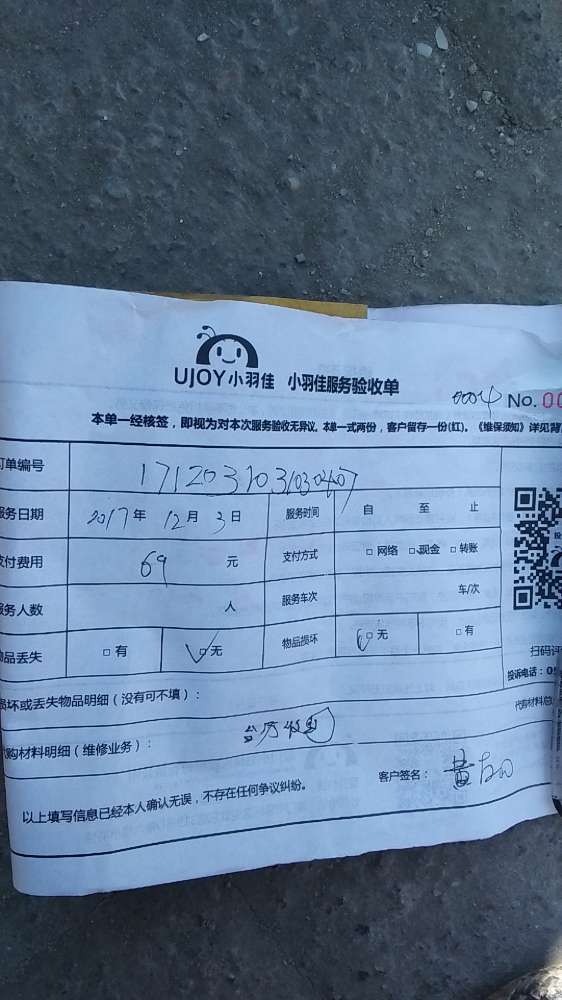 UJOY小羽佳 小羽佳服务验收单
0004 No. 00
本单一经核签，即视为对本次服务验收无异议。本单一式两份，客户留存一份(红)。《维保须知》详见背
订单编号
服务日期 2017年 12月 3日 服务时间 自 至 止
支付费用 69 元 支付方式 □网络 □现金 □转账
服务人数 人 服务车次 车/次
物品丢失 □有 □无 物品损坏 □无 □有
扫码评
投诉电话：05
损坏或丢失物品明细（没有可不填）：
代购材料总
代购材料明细（维修业务）：
以上填写信息已经本人确认无误，不存在任何争议纠纷。 客户签名： 黄